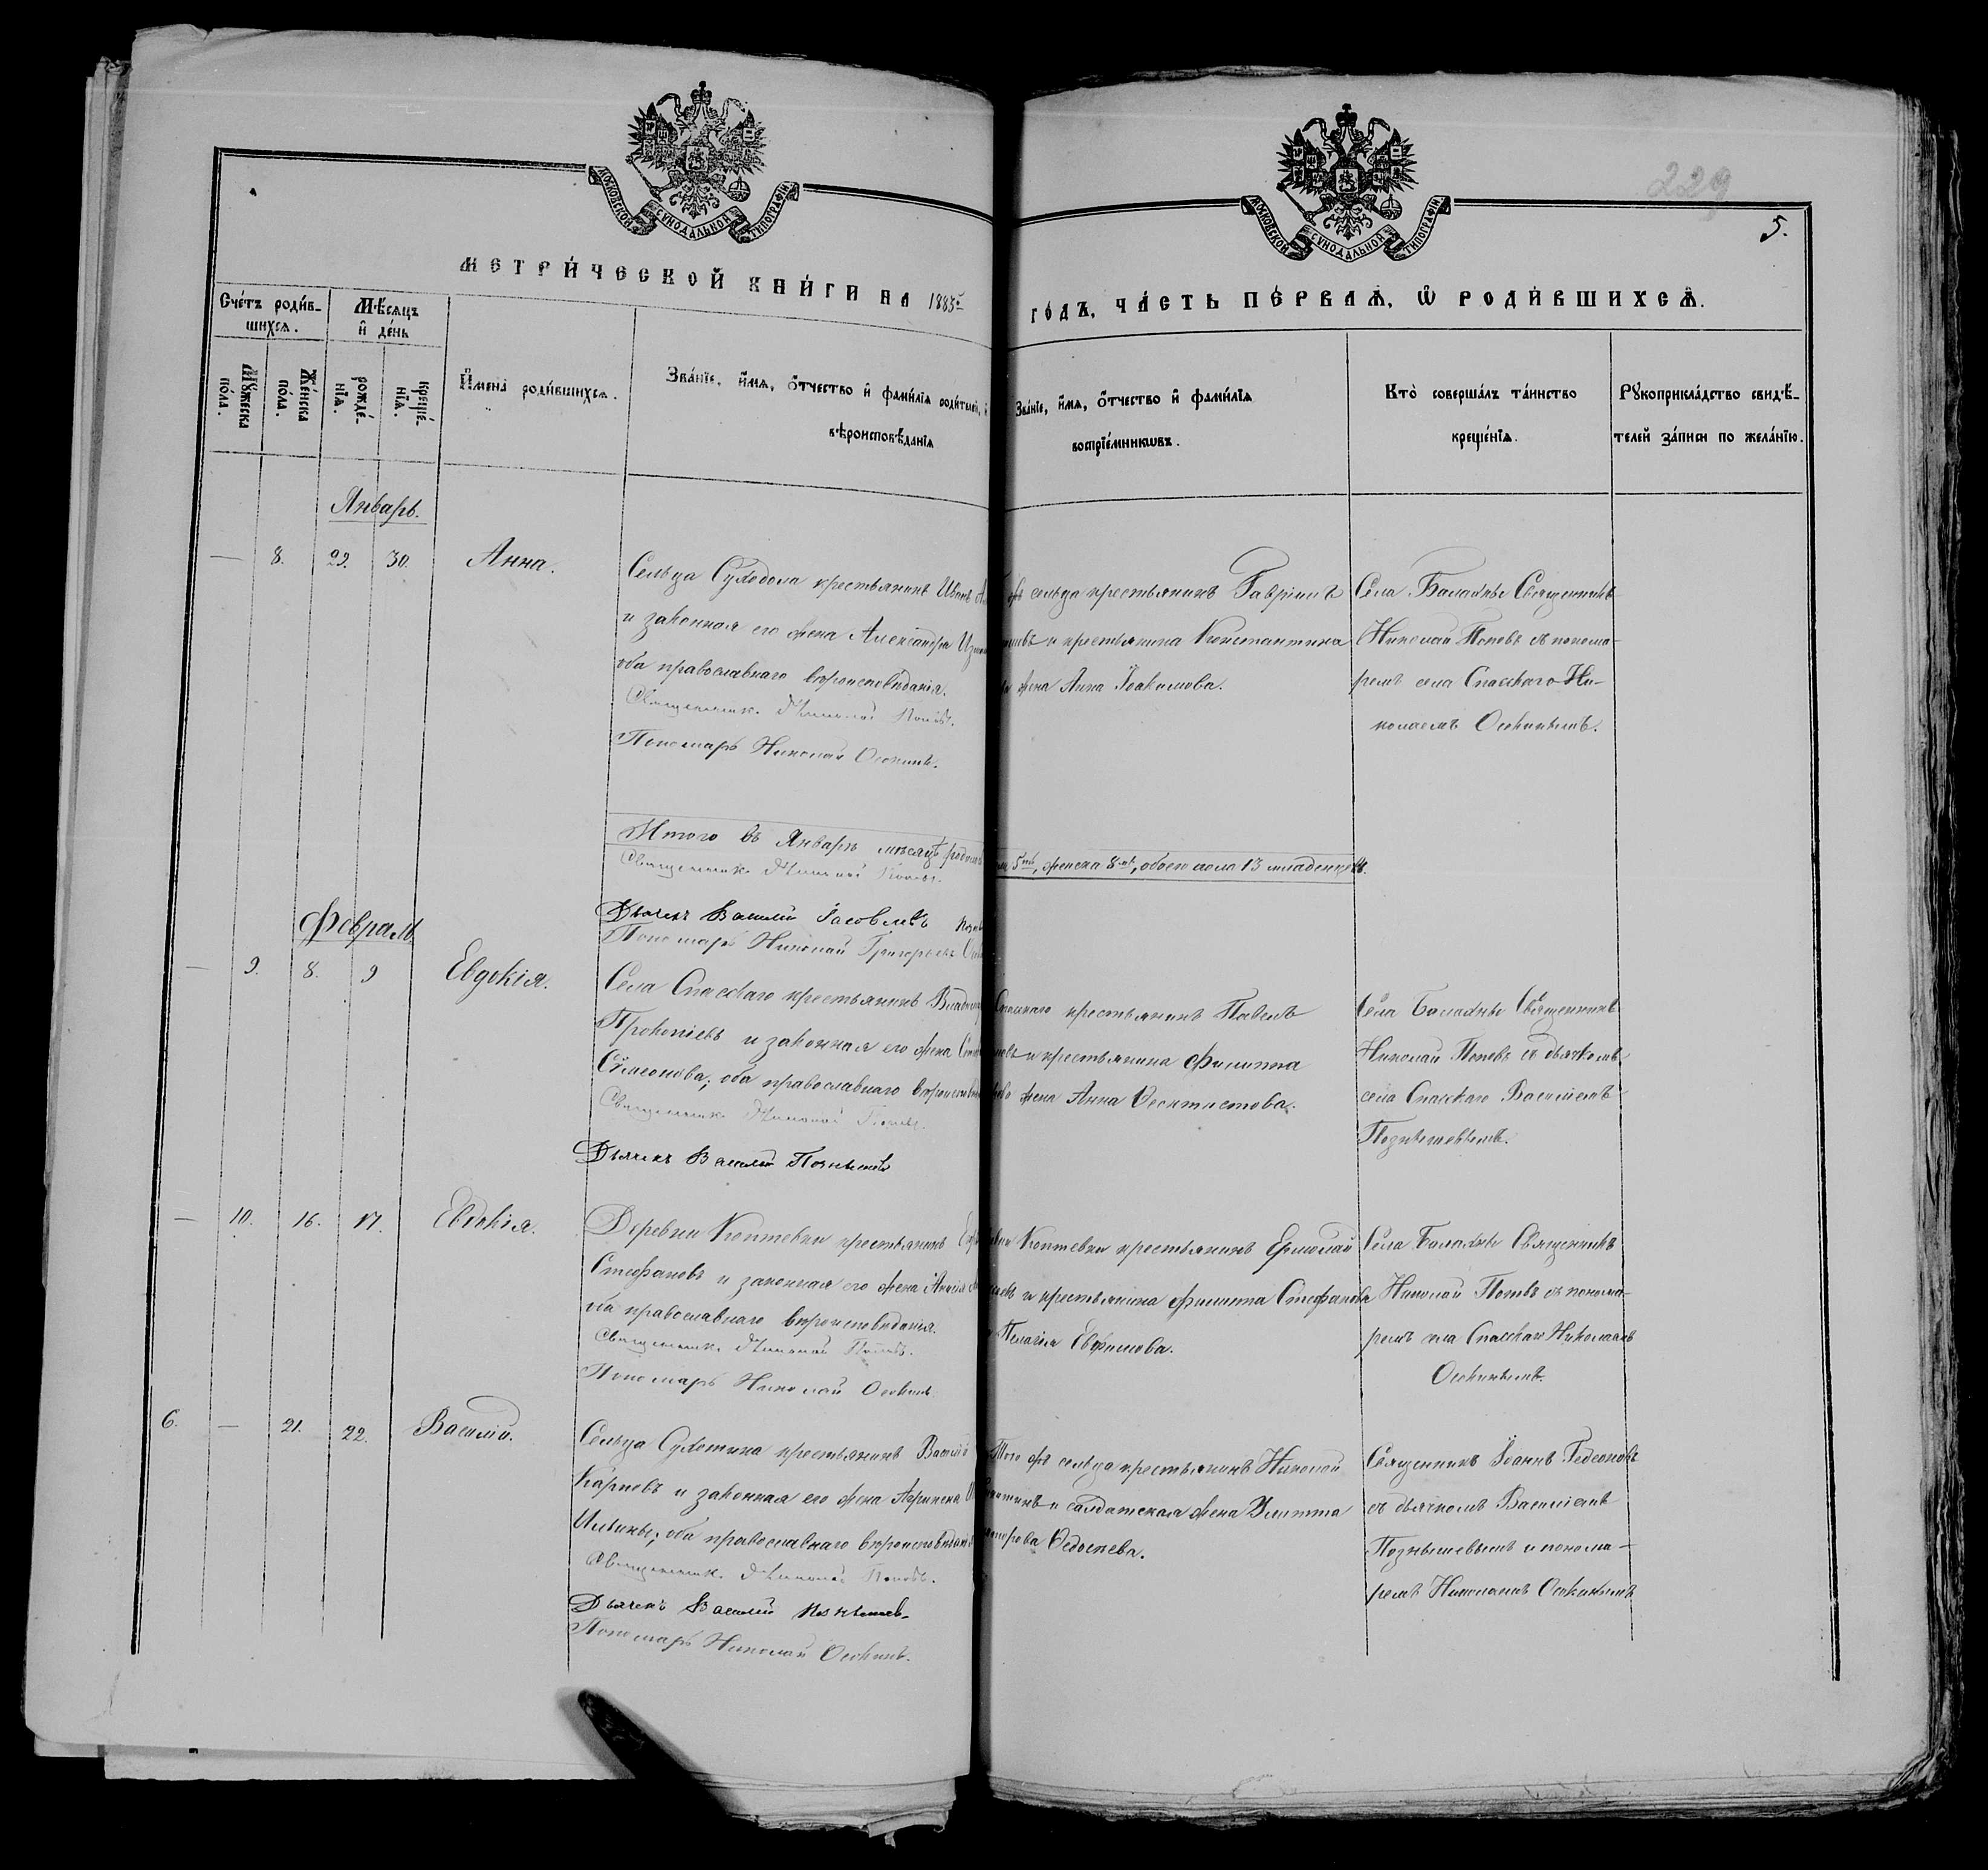 229
5.
МОСКОВСКОЙ СѴНОДАЛЬНОЙ ТИПОГРАФІИ
МОСКОВСКОЙ СѴНОДАЛЬНОЙ ТИПОГРАФІИ
МЕТРИ́ЧЕСКОЙ КНИ́ГИ НА 1883й
ГО́ДЪ, ЧА́СТЬ ПЕ́РВАЯ, Ѡ РОДИ́ВШИХСЯ.
Сче́тъ роди́в-
шихся.
Мѣ́сяцъ
и де́нь
Мꙋ́жеска
по́ла.
Же́нска
по́ла.
рожде́-
нїя.
креще́-
нїя.
Имена̀ роди́вшихся.
Зва́нїе, и́мя, о́тчество и фами́лїя роди́телей,
вѣроисповѣ́данїя
Зва́нїе, и́мя, о́тчество и фами́лїя
воспрїе́мникѡвъ.
Кто̀ соверша́лъ та́инство
креще́нїя.
Рꙋкоприкла́дство свидѣ́-
телей за́писи по жела́нїю.
Январь.
— 8. 29. 30. Анна.
Сельца Суходола крестьянинъ Иванъ
и законная его жена Александра
оба православнаго вѣроисповѣданія.
Священникъ Николай Поповъ.
Пономарь Николай Осокинъ.
сельца крестьянинъ Гавріилъ
и крестьянина Константина
жена Анна Іоакимова.
Села Балахны Священникъ
Николай Поповъ съ понома-
ремъ села Спасскаго Ни-
колаемъ Осокинымъ.
Итого въ Январѣ мѣсяцѣ
5ть, женска 8мь, обоего пола 13 младенцевъ.
Священникъ Николай Поповъ.
Дьячекъ Василій Іаковлевъ
Пономарь Николай Григорьевъ
Февраль
— 9. 8. 9 Евдокія.
Села Спасскаго крестьянинъ
Прокопіевъ и законная его жена
Симеонова; оба православнаго
Священникъ Николай Поповъ.
Дьячекъ Василій Познышевъ
Спасскаго крестьянинъ Павелъ
и крестьянина Филиппа
жена Анна Феоктистова.
Села Балахны Священникъ
Николай Поповъ съ дьячкомъ
села Спасскаго Василіемъ
Познышевымъ.
— 10. 16. 17. Евдокія.
Деревни Коптевки крестьянинъ
Стефановъ и законная его жена
оба православнаго вѣроисповѣданія.
Священникъ Николай Поповъ.
Пономарь Николай Осокинъ
Коптевки крестьянинъ Ермолай
и крестьянина Филиппа Стефанова
Пелагія Евфимова.
Села Балахны Священникъ
Николай Поповъ съ понома-
ремъ села Спасскаго Николаемъ
Осокинымъ.
6. — 21. 22. Василій.
Сельца Сухотина крестьянинъ Василій
Карповъ и законная его жена
оба православнаго вѣроисповѣданія
Священникъ Николай Поповъ.
Дьячекъ Василій Познышевъ
Пономарь Николай Осокинъ.
Того же сельца крестьянинъ Николай
и солдатская жена Улитта
Федосеева.
Священникъ Іоаннъ Гедеоновъ
съ дьячкомъ Василіемъ
Познышевымъ и понома-
ремъ Николаемъ Осокинымъ